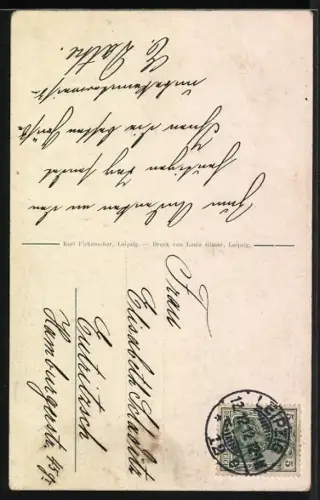 Zum Andenken an den
heutigen Tag sendet
Ihnen die besten Grüße
unbekannterweise
E. Patze.
Karl Fickenscher, Leipzig. — Druck von Louis Glaser, Leipzig.
Frau
Elisabeth
Eutritzsch
Hamburgerstr. 45
LEIPZIG
12
5